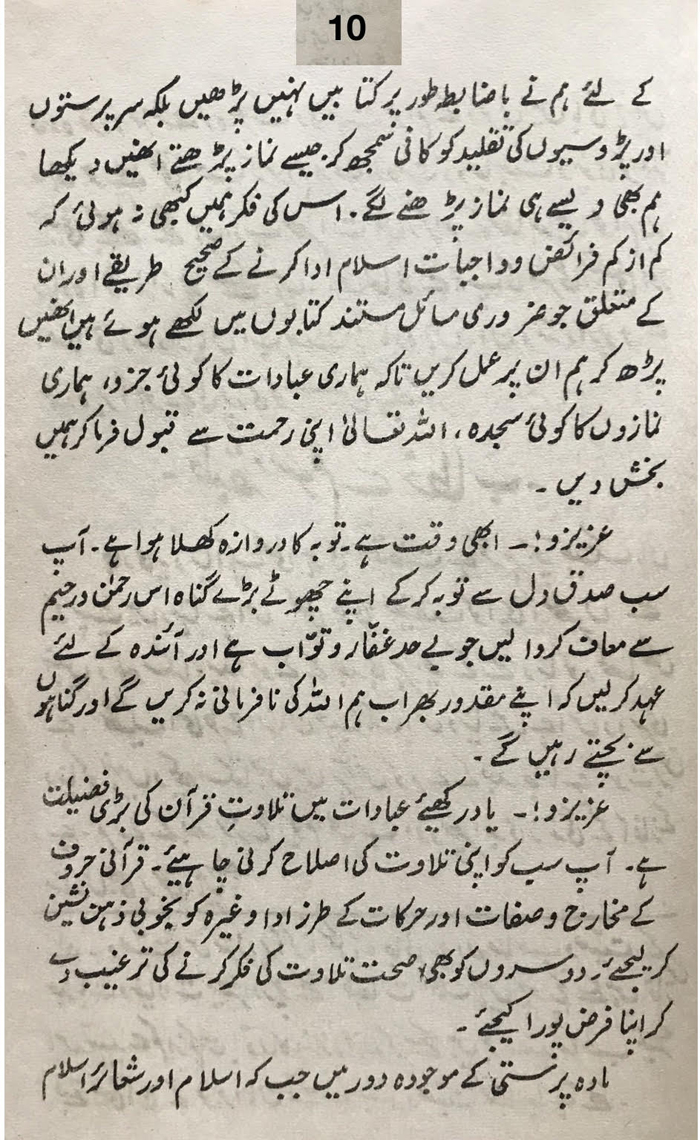 10
کے لئے ہم نے باضابطہ طور پر کتابیں نہیں پڑھیں بلکہ سرپرستوں
اور پڑوسیوں کی تقلید کو کافی سمجھ کر جیسے نماز پڑھتے انھیں دیکھا
ہم بھی ویسے ہی نماز پڑھنے لگے۔ اس کی فکر ہمیں کبھی نہ ہوئی کہ
کم از کم فرائض وواجبات اسلام ادا کرنے کے صحیح طریقے اور ان
کے متعلق جو ضروری مسائل مستند کتابوں میں لکھے ہوئے ہیں انھیں
پڑھ کر ہم ان پر عمل کریں تاکہ ہماری عبادات کا کوئی جزو، ہماری
نمازوں کا کوئی سجدہ، اللہ تعالیٰ اپنی رحمت سے قبول فرما کر ہمیں
بخش دیں۔
عزیزو!۔ ابھی وقت ہے۔ توبہ کا دروازہ کھلا ہوا ہے۔ آپ
سب صدق دل سے توبہ کرکے اپنے چھوٹے بڑے گناہ اس رحمٰن ورحیم
سے معاف کروا لیں جو بے حد غفّار و توّاب ہے اور آئندہ کے لئے
عہد کرلیں کہ اپنے مقدور بھر اب ہم اللہ کی نافرمانی نہ کریں گے اور گناہوں
سے بچتے رہیں گے۔
عزیزو!۔ یاد رکھیئے عبادات میں تلاوتِ قرآن کی بڑی فضیلت
ہے۔ آپ سب کو اپنی تلاوت کی اصلاح کرنی چاہیئے۔ قرآنی حروف
کے مخارج وصفات اور حرکات کے طرز ادا وغیرہ کو بخوبی ذہن نشین
کرلیجئے، دوسروں کو بھی صحت تلاوت کی فکر کرنے کی ترغیب دے
کر اپنا فرض پورا کیجئے۔
مادہ پرستی کے موجودہ دور میں جب کہ اسلام اور شعائر اسلام